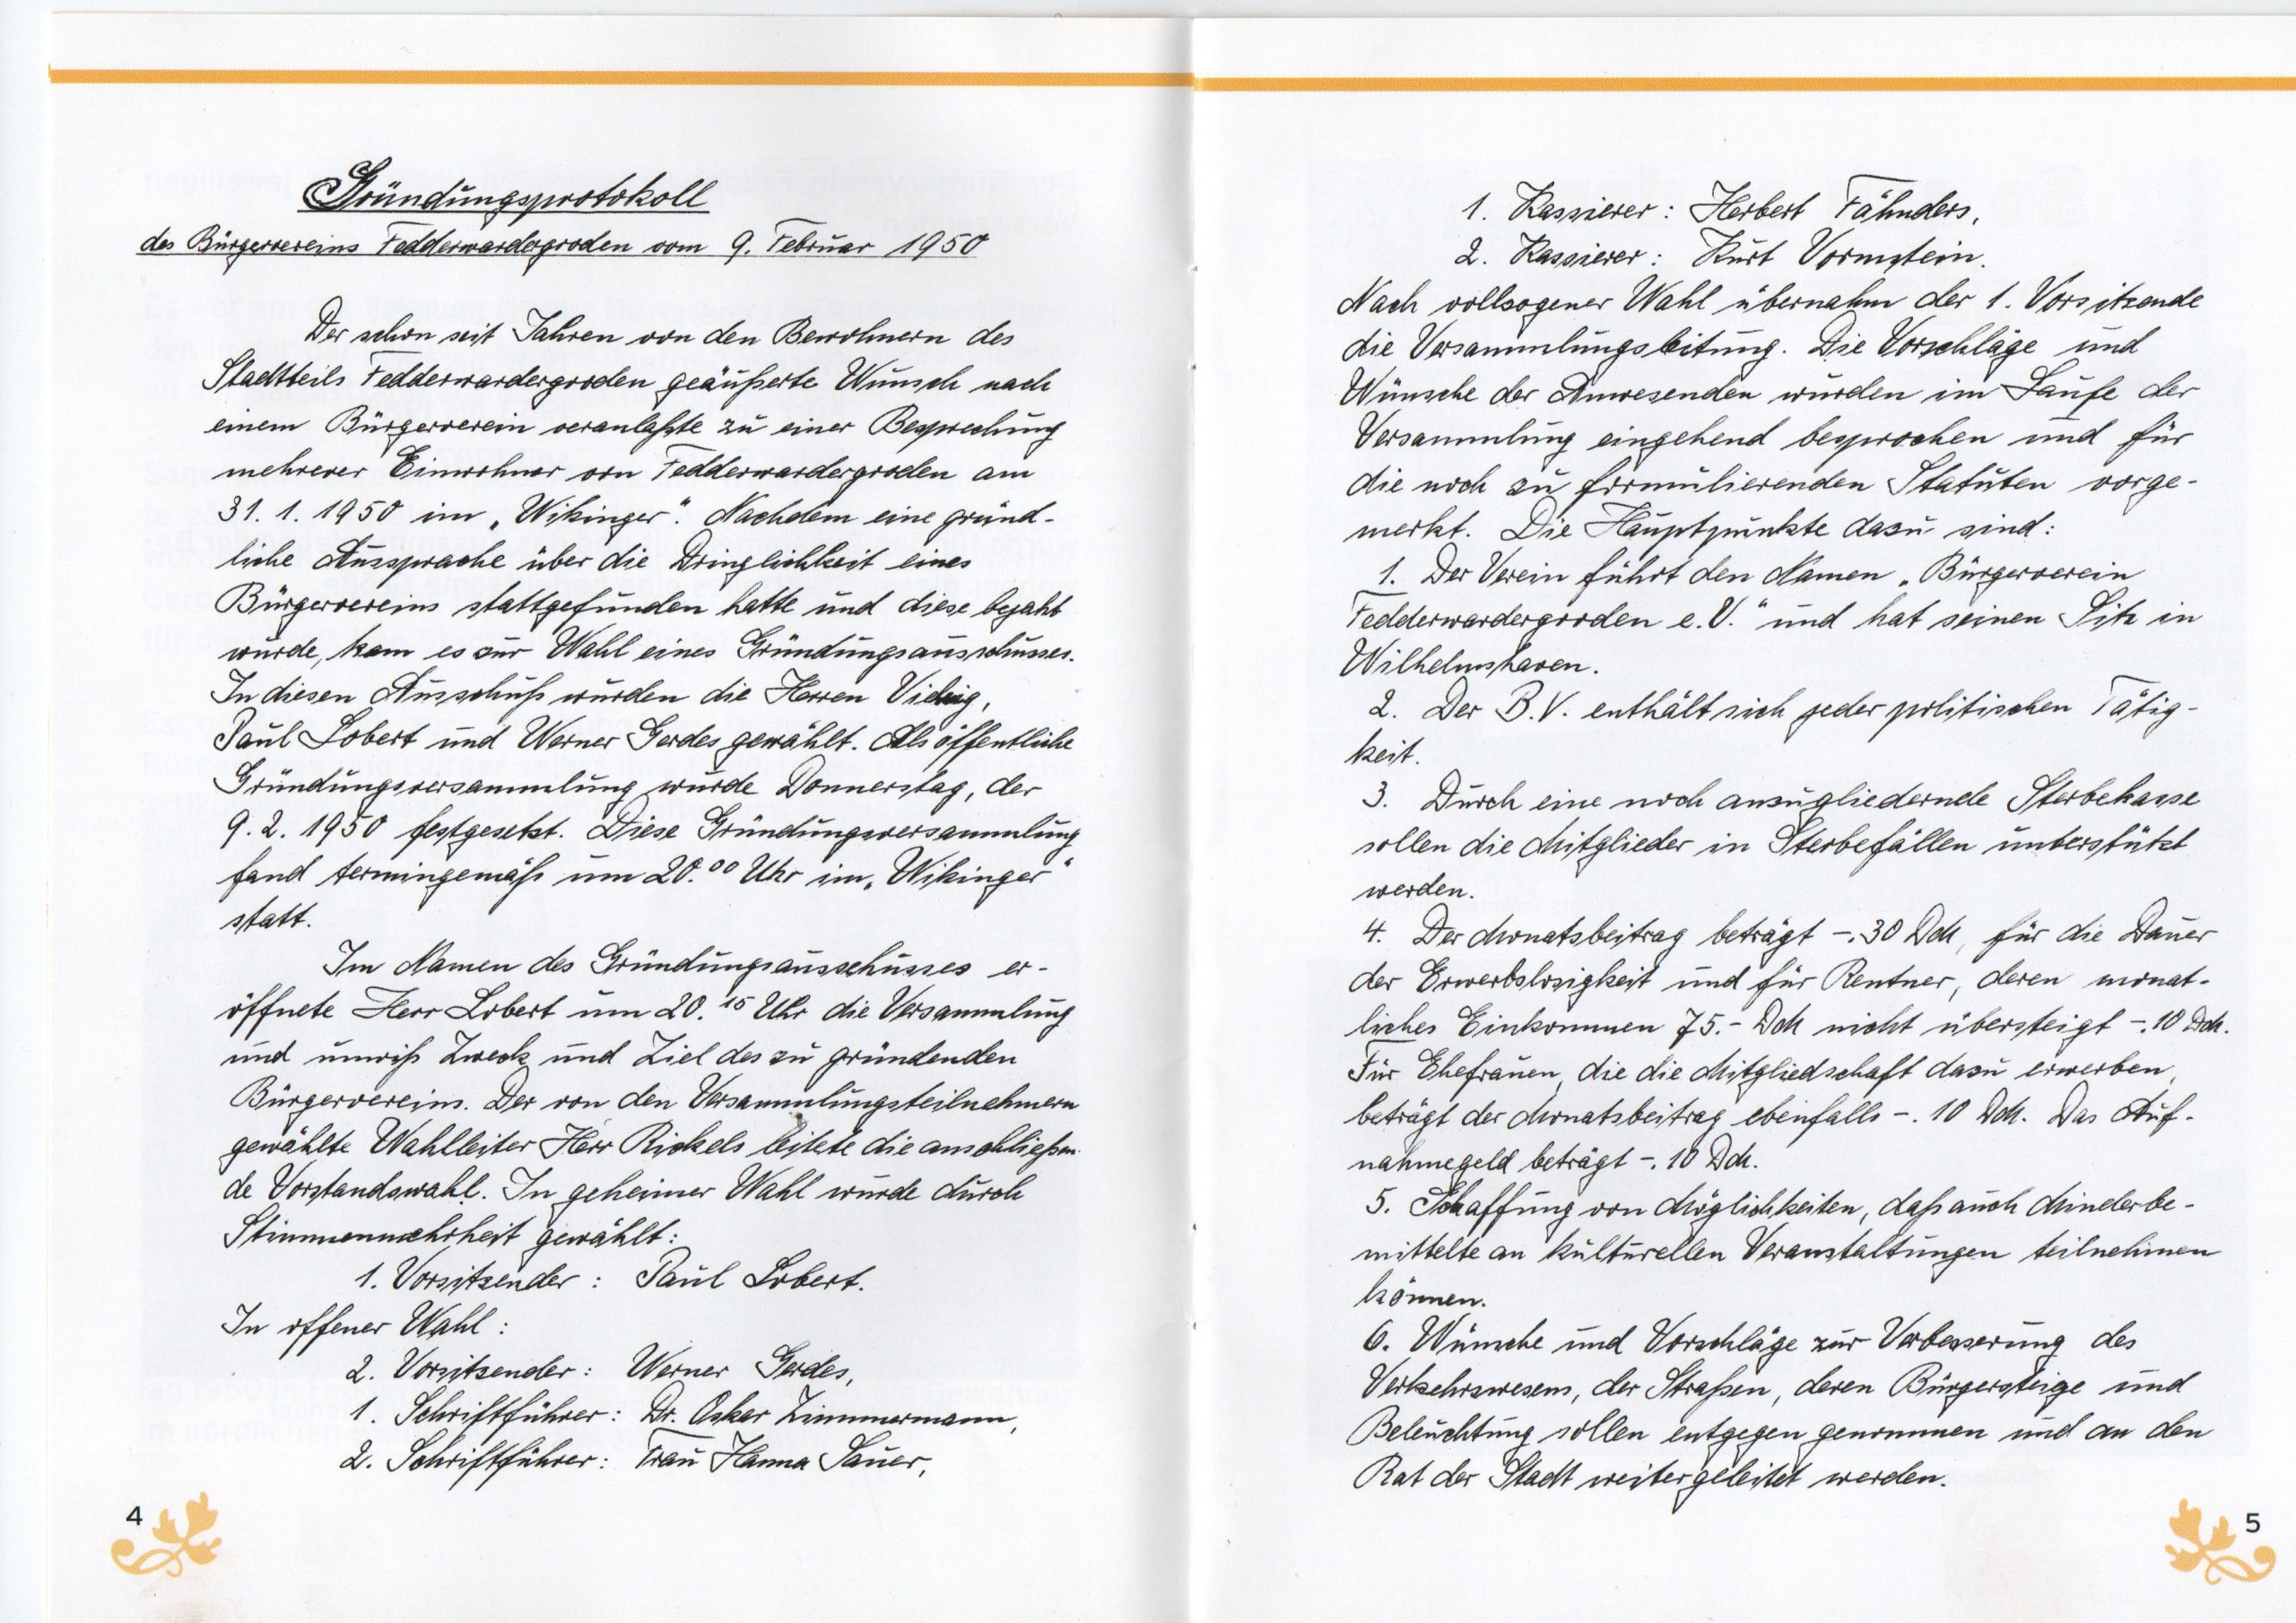 Gründungsprotokoll
des Bürgervereins Fedderwardergroden vom 9. Februar 1950
Der schon seit Jahren von den Bewohnern des
Stadtteils Fedderwardergroden geäußerte Wunsch nach
einem Bürgerverein veranlaßte zu einer Besprechung
mehrerer Einwohner von Fedderwardergroden am
31. 1. 1950 im „Wikinger“. Nachdem eine gründ-
liche Aussprache über die Dringlichkeit eines
Bürgervereins stattgefunden hatte und diese bejaht
wurde, kam es zur Wahl eines Gründungsausschusses.
In diesen Ausschuß wurden die Herren
Paul Lobert und Werner Gerdes gewählt. Als öffentliche
Gründungsversammlung wurde Donnerstag, der
9. 2. 1950 festgesetzt. Diese Gründungsversammlung
fand termingemäß um 20.00 Uhr im „Wikinger“
statt.
Im Namen des Gründungsausschusses er-
öffnete Herr Lobert um 20.15 Uhr die Versammlung
und umriß Zweck und Ziel des zu gründenden
Bürgervereins. Der von den Versammlungsteilnehmern
gewählte Wahlleiter Herr Rickels leitete die anschließen-
de Vorstandswahl. In geheimer Wahl wurde durch
Stimmenmehrheit gewählt:
1. Vorsitzender : Paul Lobert.
In offener Wahl :
2. Vorsitzender : Werner Gerdes,
1. Schriftführer : Dr. Oskar Zimmermann,
2. Schriftführer : Frau Hanna Sauer,
4
1. Kassierer : Herbert Fähnders,
2. Kassierer : Kurt Vormstein.
Nach vollzogener Wahl übernahm der 1. Vorsitzende
die Versammlungsleitung. Die Vorschläge und
Wünsche der Anwesenden wurden im Laufe der
Versammlung eingehend besprochen und für
die noch zu formulierenden Statuten vorge-
merkt. Die Hauptpunkte dazu sind:
1. Der Verein führt den Namen „Bürgerverein
Fedderwardergroden e.V.“ und hat seinen Sitz in
Wilhelmshaven.
2. Der B.V. enthält sich jeder politischen Tätig-
keit.
3. Durch eine noch anzugliedernde Sterbekasse
sollen die Mitglieder in Sterbefällen unterstützt
werden.
4. Der Monatsbeitrag beträgt -.30 DM, für die Dauer
der Erwerbslosigkeit und für Rentner, deren monat-
liches Einkommen 75.- DM nicht übersteigt -.10 DM.
Für Ehefrauen, die die Mitgliedschaft dazu erwerben,
beträgt der Monatsbeitrag ebenfalls -.10 DM. Das Auf-
nahmegeld beträgt -.10 DM.
5. Schaffung von Möglichkeiten, daß auch Minderbe-
mittelte an kulturellen Veranstaltungen teilnehmen
können.
6. Wünsche und Vorschläge zur Verbesserung des
Verkehrswesens, der Straßen, deren Bürgersteige und
Beleuchtung sollen entgegen genommen und an den
Rat der Stadt weitergeleitet werden.
5